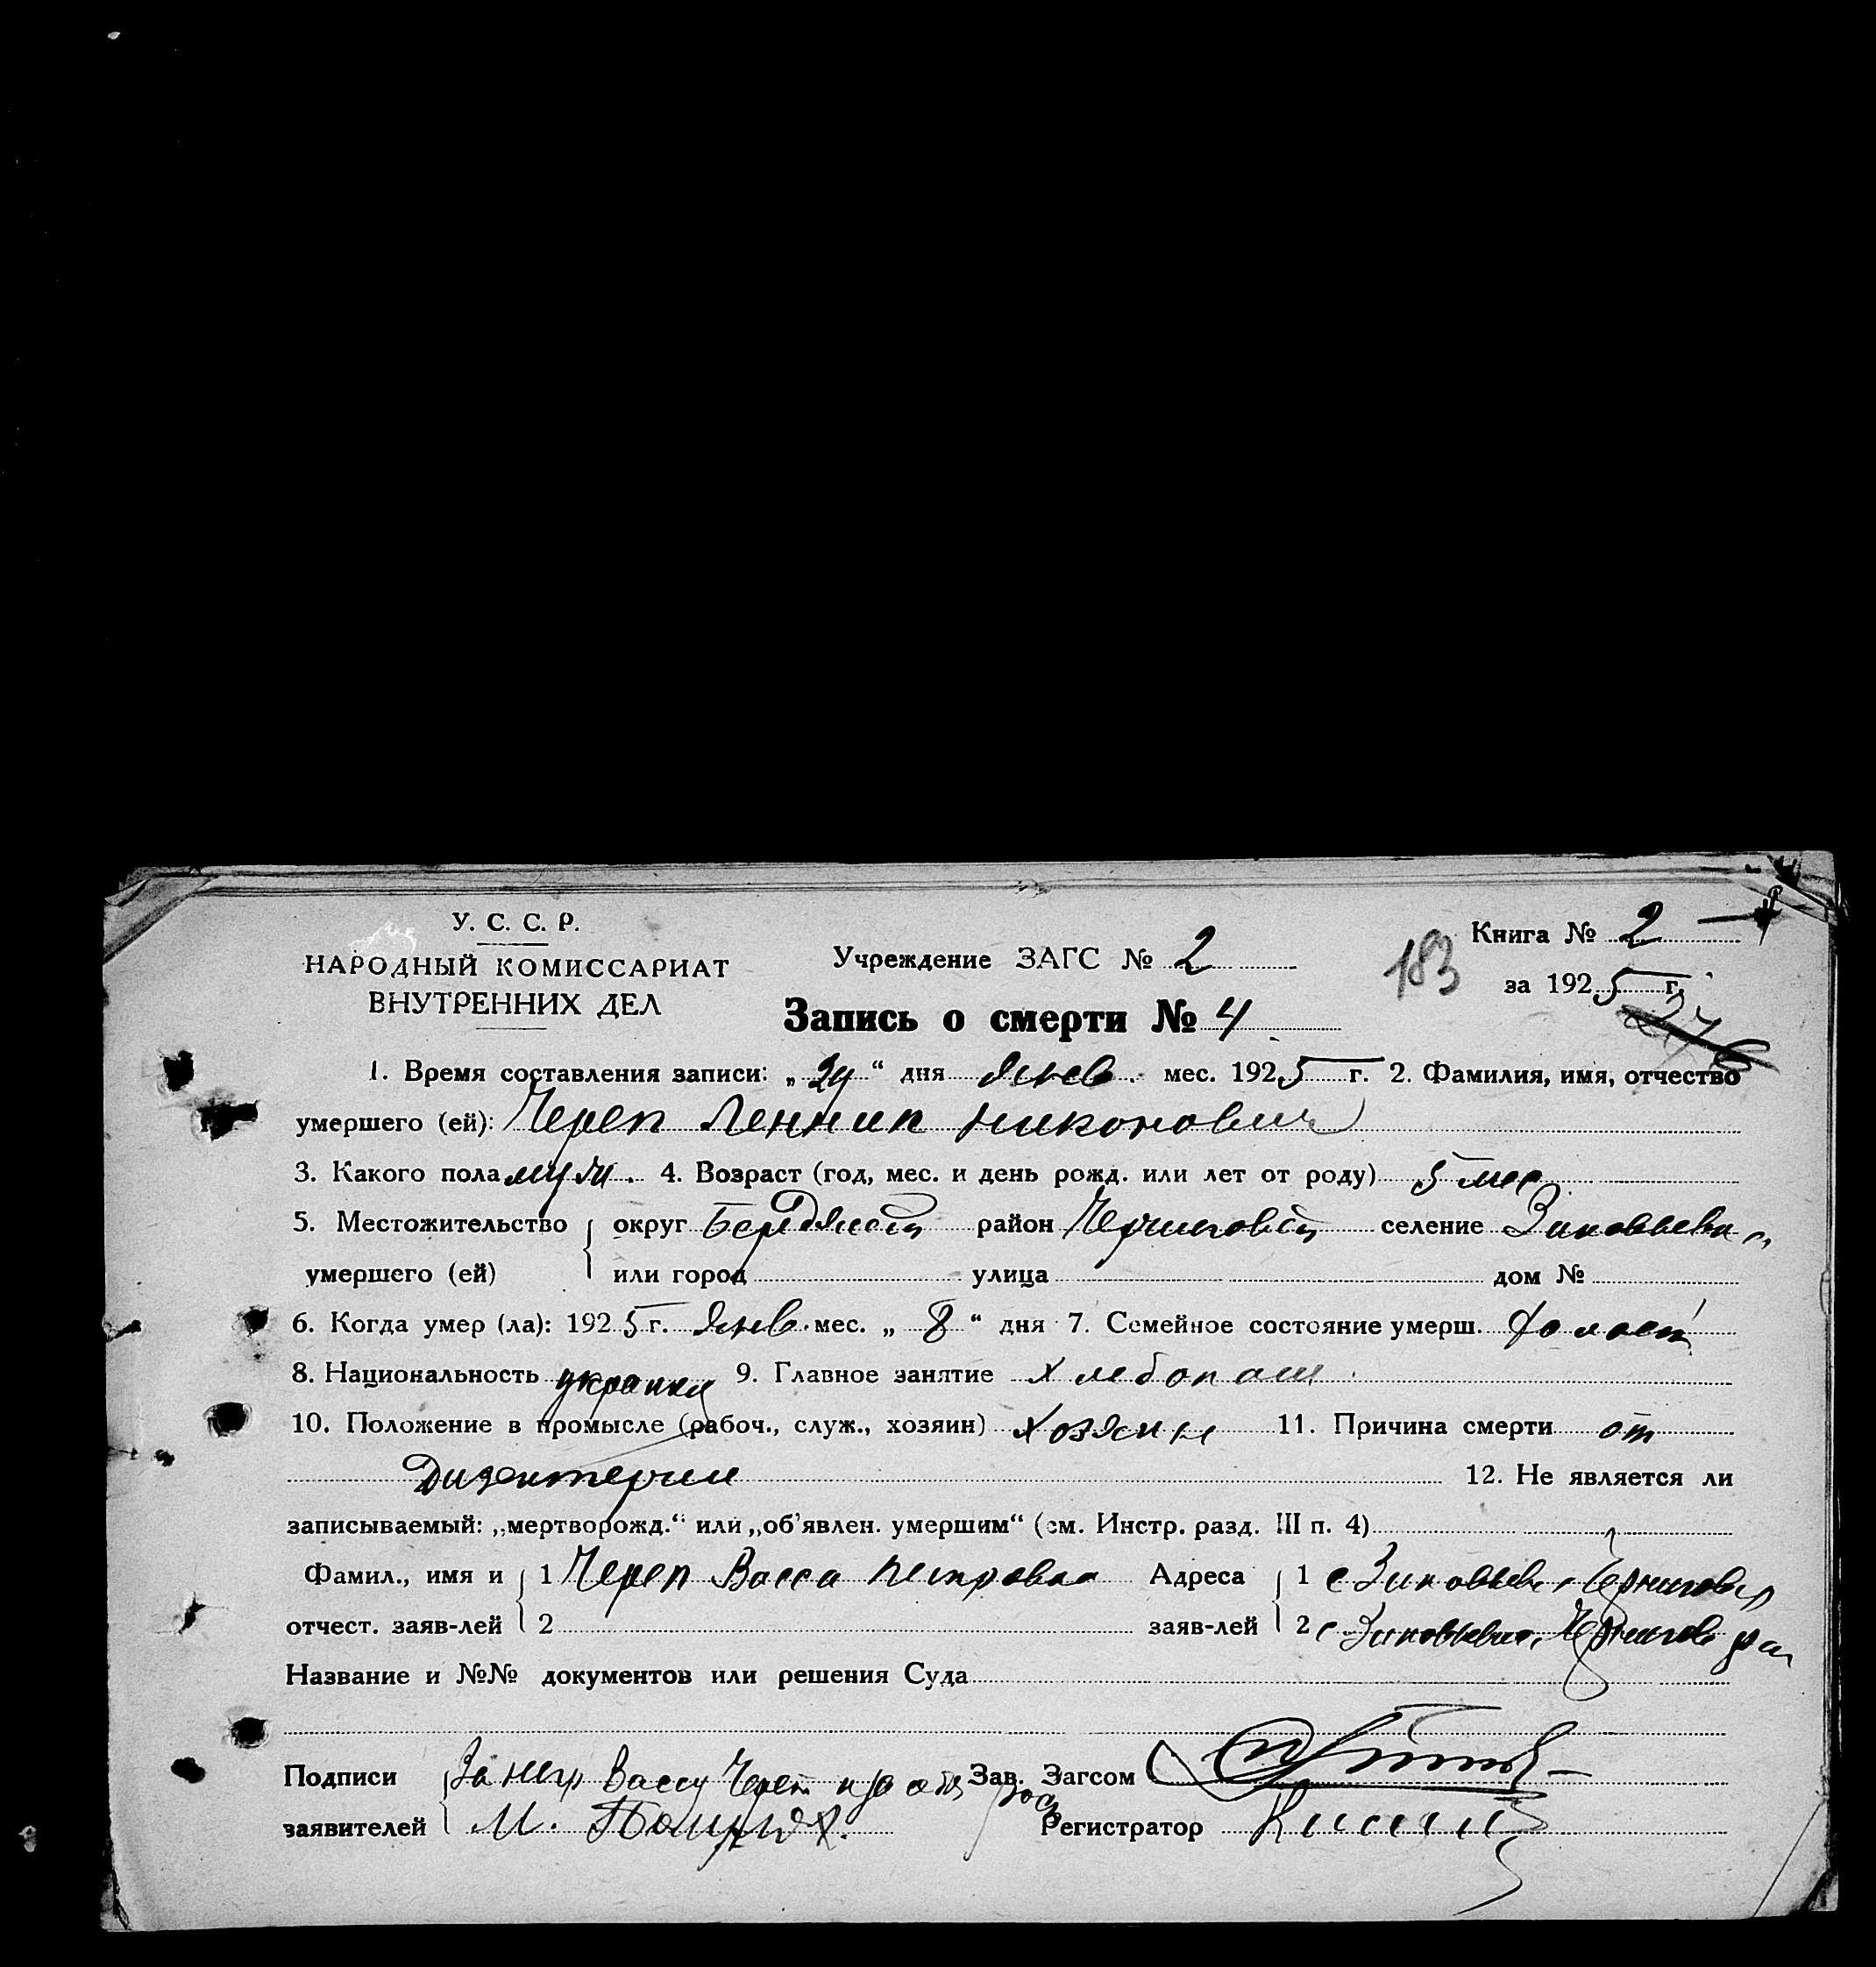 У. С. С. Р.
НАРОДНЫЙ КОМИССАРИАТ
ВНУТРЕННИХ ДЕЛ
Учреждение ЗАГС № 2
183
Книга № 2
за 1925 г.
Запись о смерти № 4
1. Время составления записи: „24“ дня Янв. мес. 1925 г. 2. Фамилия, имя, отчество
умершего (ей): Череп Никонович
3. Какого пола муж. 4. Возраст (год, мес. и день рожд. или лет от роду) 5 мес
5. Местожительство округ Бердянск район Черниговск селение Зиновьевка
умершего (ей) или город улица дом №
6. Когда умер (ла): 1925 г. Янв. мес. „8“ дня 7. Семейное состояние умерш. холост
8. Национальность 9. Главное занятие хлебопаш.
10. Положение в промысле (рабоч., служ., хозяин) хозяин 11. Причина смерти от
Дизентерии 12. Не является ли
записываемый: „мертворожд.“ или „об'явлен. умершим“ (см. Инстр. разд. III п. 4)
Фамил., имя и 1 Череп Васса Петровна Адреса 1 с Зиновьевк
отчест. заяв-лей 2 заяв-лей 2 с Зиновьевка,
Название и №№ документов или решения Суда
Подписи За негр Вассу Череп Зав. Загсом
заявителей М. Регистратор